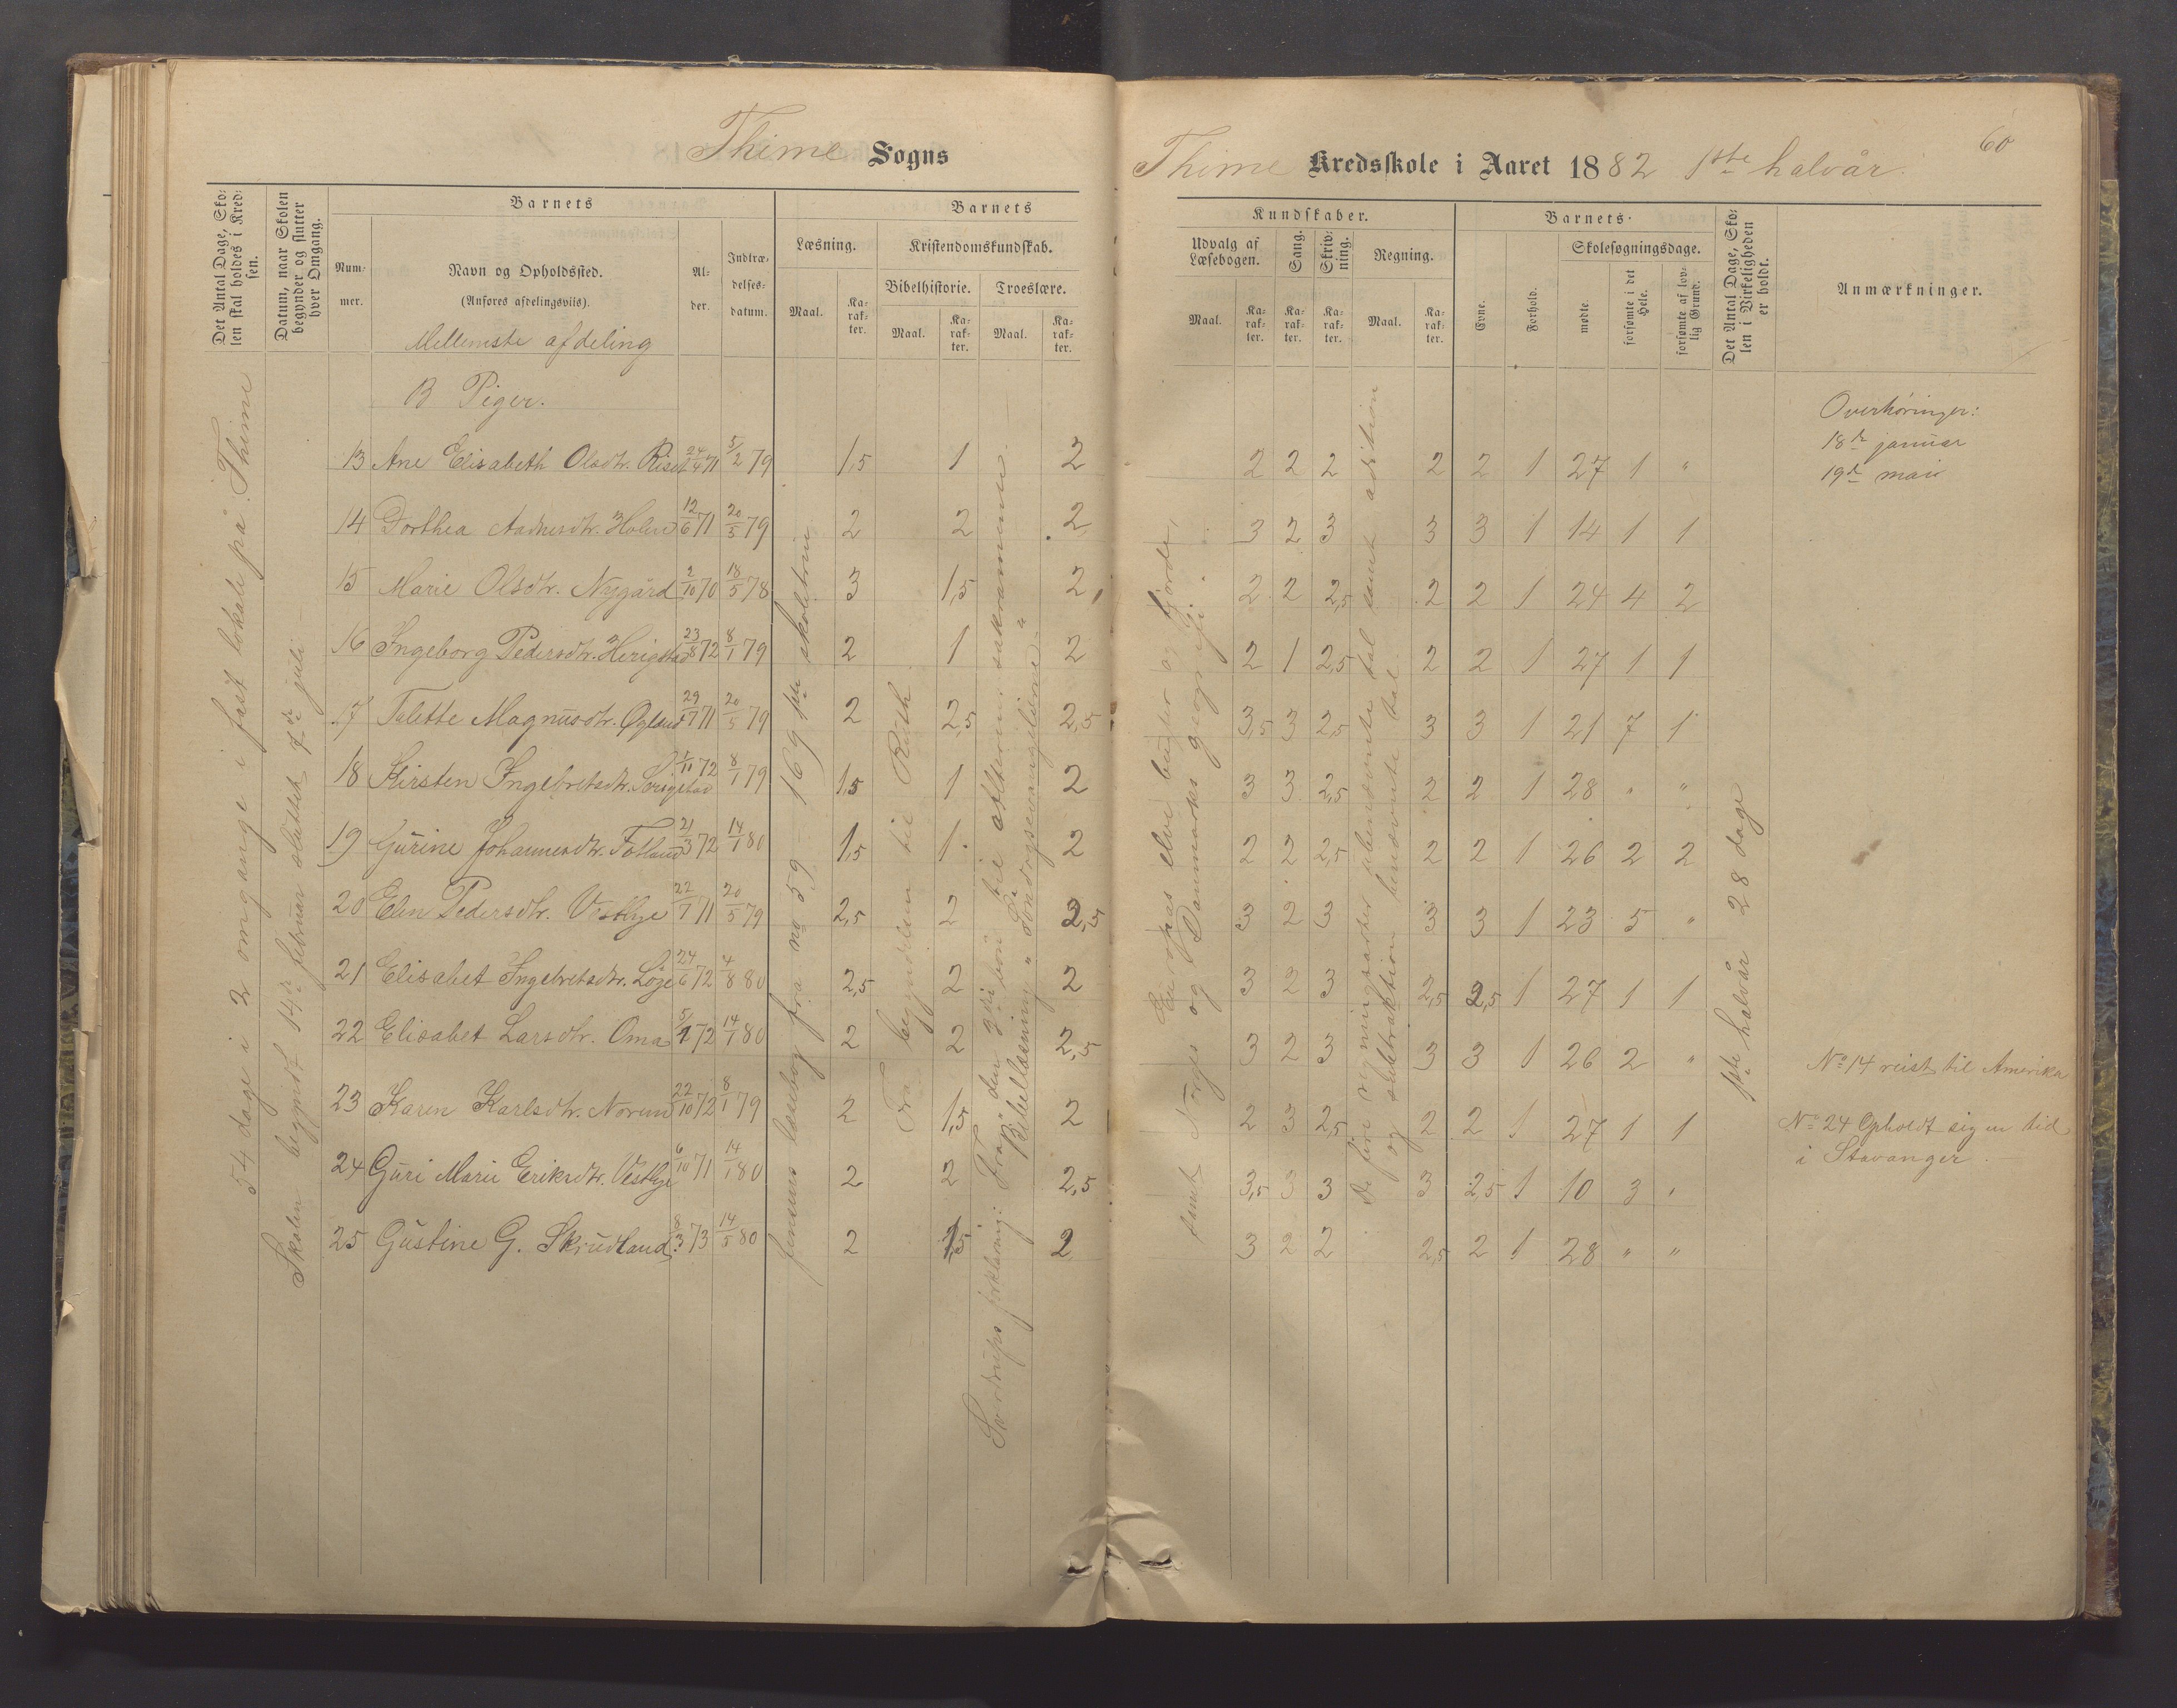 Thime Sogns
Det Antal Dage, Sko-
len skal holdes i Kred-
sen.
Datum, naar Skolen
begynder og slutter
hver Omgang.
Barnets
Num-
mer.
Navn og Opholdssted.
(Anføres afdelingsvis).
Al-
der.
Indtræ-
delses-
datum.
Barnets
Læsning.
Maal.
Ka-
rak-
ter.
Kristendomskundskab.
Bibelhistorie.
Maal.
Ka-
rak-
ter.
Troeslære.
Maal.
Ka-
rak-
ter.
Mellemste afdeling
B Piger.
54 dage i 2 omgange i fast lokale på Thime
Skolen begyndt 14de februar sluttet 7de juli
Jensens læsebog fra no 59 – 169 1ste skoletrin
Fra begyndelsen til Ruth
Sverdrups forklaring: Fra den 3die bøn til alterens sakramente.
Bibellæsning "Søndagsevangelierne"
13 Ane Elisabeth Olsdtr. Riset 24/4 71 5/2 79 1,5 1 2
14 Dorthea Aadnesdtr. Holen 12/6 71 20/5 79 2 2 2
15 Marie Olsdtr. Nygård 2/10 70 18/5 78 3 1,5 2
16 Ingeborg Pedersdtr. Herigstad 23/8 72 8/1 79 2 1 2
17 Talette Magnusdtr. Øgland 29/7 71 20/5 79 2 2,5 2,5
18 Kirsten Ingebretsdtr. 1/11 72 8/1 79 1,5 1 2
19 Gurine Johannesdtr. Fotland 21/3 72 14/1 80 1,5 1 2
20 Elen Pedersdtr. Vestlye 22/7 71 20/5 79 2,5 2 2,5
21 Elisabet Ingebretsdtr. Løge 24/6 72 4/8 80 2,5 2 2
22 Elisabet Larsdtr. Oma 5/1 72 14/1 80 2 2 2,5
23 Karen Karlsdtr. Norem 22/10 72 8/1 79 2 1,5 2
24 Guri Marie Eriksdtr. Vestlye 6/10 71 14/1 80 2 2 2,5
25 Gustine G. Skrudland 8/3 73 14/5 80 2 1,5 2
60
Thime Kredsskole i Aaret 1882 1ste halvår.
Kundskaber.
Udvalg af
Læsebogen.
Maal.
Ka-
rak-
ter.
Sang.
Ka-
rak-
ter.
Skriv-
ning.
Ka-
rak-
ter.
Regning.
Maal.
Ka-
rak-
ter.
Barnets
Evne.
Forhold.
Skolesøgningsdage.
mødte
forsømte i det
Hele.
forsømte af lov-
lig Grund.
Det Antal Dage, Sko-
len i Virkeligheden
er holdt.
Anmærkninger.
Europas elve bugter og fjorde,
samt Norges og Danmarks geografi.
De fire regningsarter i ubenævnte tal samt addition
og subtraktion i benævnte tal
1ste halvår 28 dage
2 2 2 2 2 1 27 1 "
3 2 3 3 3 1 14 1 1
2 2 2,5 2 2 1 24 4 2
2 1 2,5 2 2 1 27 1 1
3,5 3 2,5 3 3 1 21 7 1
3 3 2,5 2 2 1 28 " "
2 2 2,5 2 2 1 26 2 2
3 2 3 3 3 1 23 5 "
3 2 3 2,5 2,5 1 27 1 1
3 2 3 3 3 1 26 2 "
2 3 2,5 2 2 1 27 1 1
3,5 3 3 3 2,5 1 10 3 "
3 2 2 2,5 2 1 28 " "
Overhøringer:
18de januar
19de mai
No 14 reist til Amerika
No 24 Opholdt sig en tid
i Stavanger.